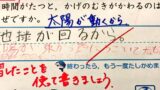 時間がたつと、かげのむきがかわるのは
ぜですか。太陽が動くから。
地球が回るから。
習ったことを
使って書きましょう。
終わったら、もう一度たしかめま